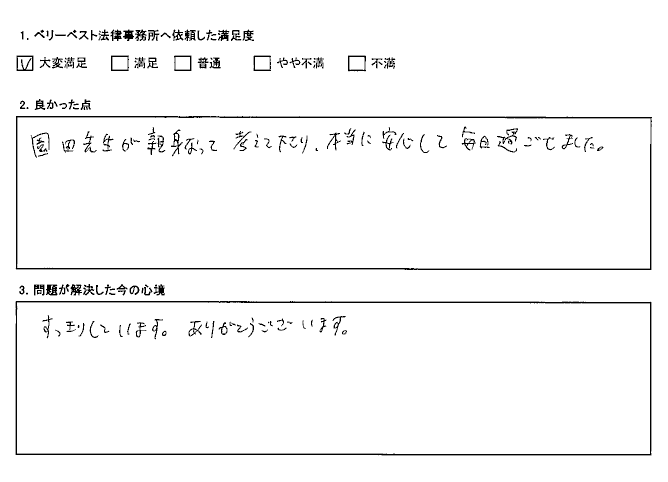 1. ベリーベスト法律事務所へ依頼した満足度
☑ 大変満足 □ 満足 □ 普通 □ やや不満 □ 不満
2. 良かった点
園田先生が親身なって考えて下さり、本当に安心して毎日過ごせました。
3. 問題が解決した今の心境
すっきりしています。ありがとうございます。